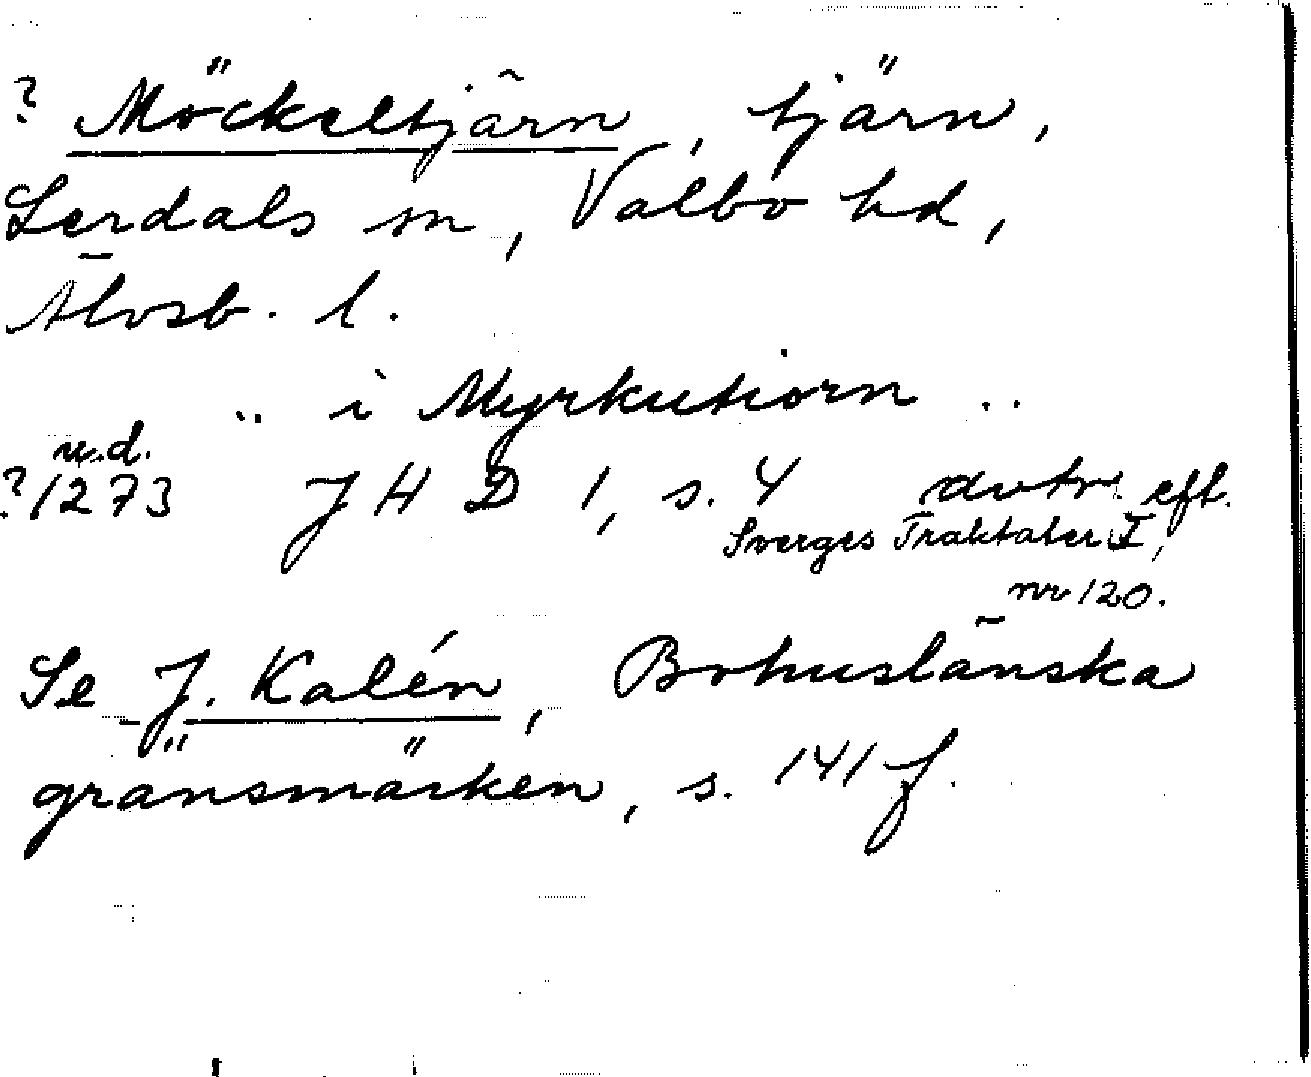 ? Möckeltjärn, tjärn,
Lerdals sn, Valbo hd,
Älvsb. l.
.. i Myrkutiorn ..
u.d.
? 1273 JHD 1, s. 4 avtr. eft.
Sverges Traktater I,
nr 120.
Se J. Kalén, Bohuslänska
gränsmärken, s. 141 f.